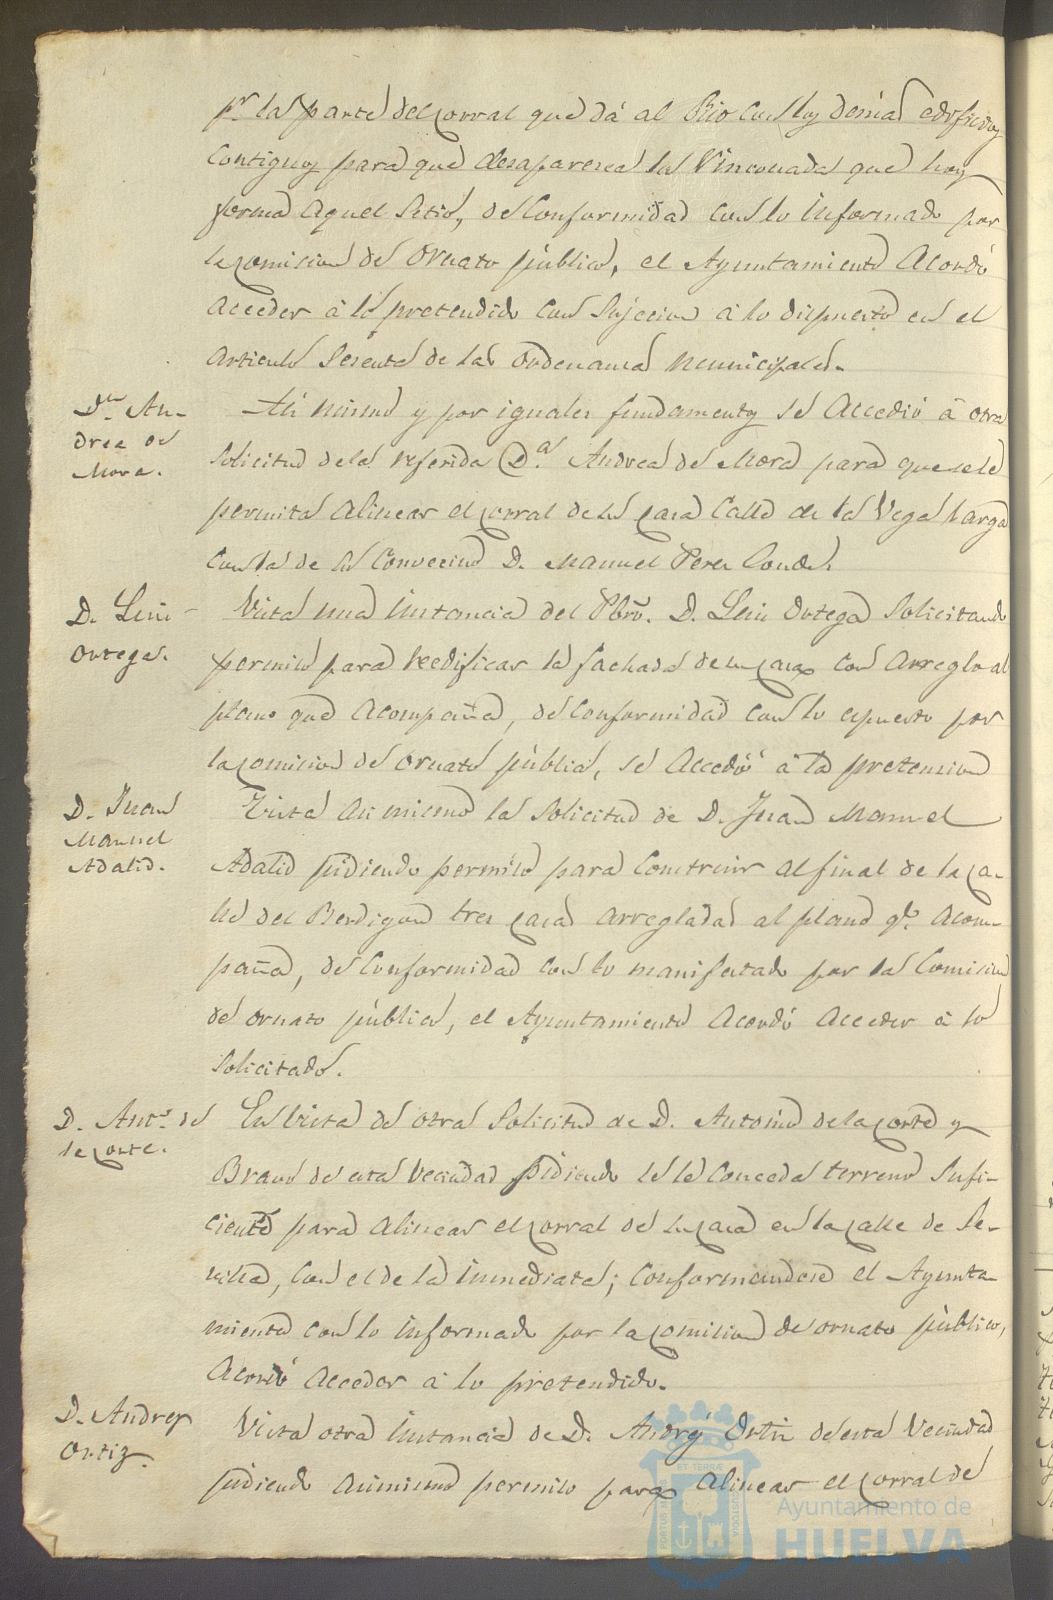 pr. la parte del corral que dá al Rio con los demas edificios
contiguos para que desaparesca la Rinconada que hoy
forma aquel sitio, de conformidad con lo informado por
la comision de Ornato público, el Ayuntamiento acordó
acceder á lo pretendido con sujecion á lo dispuesto en el
articulo sesenta de las ordenanzas municipales.
Da. An-
drea de
Mora.
Asi mismo y por iguales fundamentos se accedió á otra
solicitud de la referida Da. Andrea de Mora para que se le
permita alinear el corral de su casa calle de la Vega larga
con la de su convecino D. Manuel Perez Conde.
D. Luis
Ortega.
Vista una instancia del Pbro. D. Luis Ortega solicitando
permiso para reedificar la fachada de su casa con arreglo al
plano que acompaña, de conformidad con lo espuesto por
la comision de ornato público, se accedió á la pretension
D. Juan
Manuel
Adalid.
Vista asi mismo la solicitud de D. Juan Manuel
Adalid pidiendo permiso para construir al final de la ca-
lle del Berdigon tres casas arregladas al plano qe. acom-
paña, de conformidad con lo manifestado por la comision
de ornato público, el Ayuntamiento acordó acceder á lo
solicitado.
D. Anto. de
la Corte.
En vista de otra solicitud de D. Antonio de la Corte y
Bravo de esta vecindad pidiendo se le conceda terreno sufi-
ciente para alinear el corral de su casa en la calle de Se-
villa, con el de la inmediata; conformandose el Ayunta-
miento con lo informado por la comision de ornato público,
acordó acceder á lo pretendido.
D. Andres
Ortiz.
Vista otra instancia de D. Andrés Ortiz de esta vecindad
pidiendo asimismo permiso para alinear el corral de
PORTUS MARIS
ET TERRAE
CUSTODIA
Ayuntamiento de
HUELVA